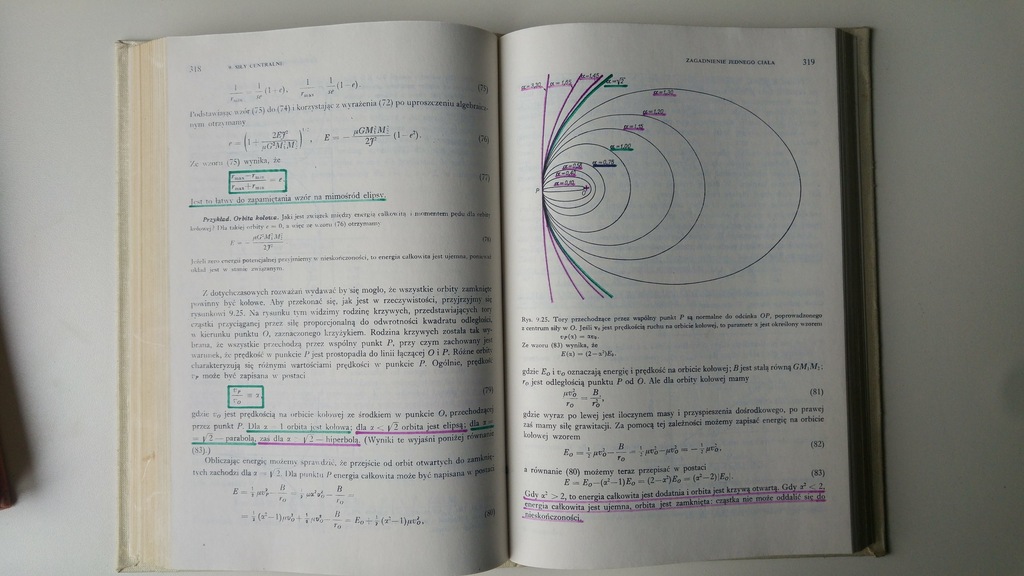 318
9. SIŁY CENTRALNE
(75)
Podstawiając wzór (75) do (74) i korzystając z wyrażenia (72) po uproszczeniu algebraicz-
nym otrzymamy
(76)
Ze wzoru (75) wynika, że
(77)
Jest to łatwy do zapamiętania wzór na mimośród elipsy.
Przykład. Orbita kołowa. Jaki jest związek między energią całkowitą i momentem pędu dla orbity
kołowej? Dla takiej orbity e = 0, a więc ze wzoru (76) otrzymamy
(78)
Jeżeli zero energii potencjalnej przyjmiemy w nieskończoności, to energia całkowita jest ujemna,
układ jest w stanie związanym.
Z dotychczasowych rozważań wydawać by się mogło, że wszystkie orbity zamknięte
powinny być kołowe. Aby przekonać się, jak jest w rzeczywistości, przyjrzyjmy się
rysunkowi 9.25. Na rysunku tym widzimy rodzinę krzywych, przedstawiających tory
cząstki przyciąganej przez siłę proporcjonalną do odwrotności kwadratu odległości,
w kierunku punktu O, zaznaczonego krzyżykiem. Rodzina krzywych została tak wy-
brana, że wszystkie przechodzą przez wspólny punkt P, przy czym zachowany jest
warunek, że prędkość w punkcie P jest prostopadła do linii łączącej O i P. Różne orbity
charakteryzują się różnymi wartościami prędkości w punkcie P. Ogólnie, prędkość
v_P może być zapisana w postaci
v_P / v_O = α, (79)
gdzie v_O jest prędkością na orbicie kołowej ze środkiem w punkcie O, przechodzącej
przez punkt P. Dla α = 1 orbita jest kołowa; dla α < √2 orbita jest elipsą; dla α =
= √2 — parabolą, zaś dla α > √2 — hiperbolą. (Wyniki te wyjaśni poniżej równanie
(83).)
Obliczając energię możemy sprawdzić, że przejście od orbit otwartych do zamknię-
tych zachodzi dla α = √2. Dla punktu P energia całkowita może być napisana w postaci
E = ½ μv²_P − B/r_O = ½ μα²v²_O − B/r_O =
= ½ (α²−1)μv²_O + ½ μv²_O − B/r_O = E_O + ½ (α²−1)μv²_O, (80)
ZAGADNIENIE JEDNEGO CIAŁA
319
α=2,20
α=1,65
α=√2
α=1,30
α=1,20
α=1,15
α=1,00
P
O
Rys. 9.25. Tory przechodzące przez wspólny punkt P są normalne do odcinka OP, poprowadzonego
z centrum siły w O. Jeśli v₀ jest prędkością ruchu na orbicie kołowej, to parametr α jest określony wzorem
v_P(α) = αv₀.
Ze wzoru (83) wynika, że
E(α) = (2−α²)E₀.
gdzie E_O i v_O oznaczają energię i prędkość na orbicie kołowej; B jest stałą równą GM₁M₂;
r_O jest odległością punktu P od O. Ale dla orbity kołowej mamy
μv²_O / r_O = B / r²_O, (81)
gdzie wyraz po lewej jest iloczynem masy i przyspieszenia dośrodkowego, po prawej
zaś mamy siłę grawitacji. Za pomocą tej zależności możemy zapisać energię na orbicie
kołowej wzorem
E_O = ½ μv²_O − B/r_O = ½ μv²_O − μv²_O = − ½ μv²_O, (82)
a równanie (80) możemy teraz przepisać w postaci
E = E_O−(α²−1)E_O = (2−α²)E_O = (α²−2)|E_O|. (83)
Gdy α² > 2, to energia całkowita jest dodatnia i orbita jest krzywą otwartą. Gdy α² < 2,
energia całkowita jest ujemna, orbita jest zamknięta: cząstka nie może oddalić się do
nieskończoności.